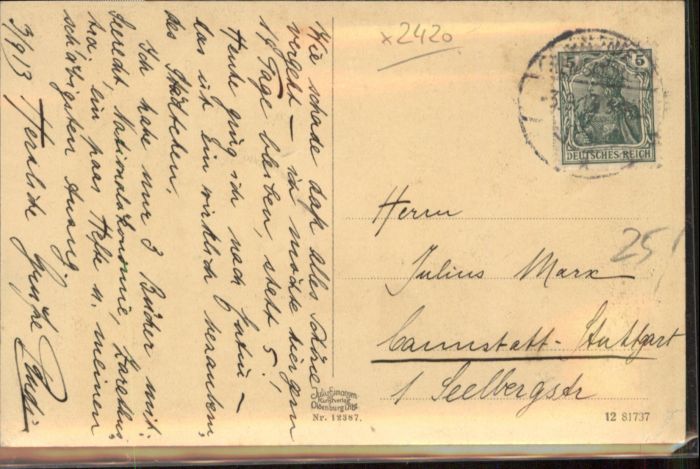 Wie schade daß alles Schöne
vergeht – ich möchte hier gern
14 Tage bleiben, statt 5!
Heute ging ich nach Eutin –
das ist ein wirklich
des Städtchen.
Ich habe nur 3 Bücher mit:
Nationalökonomie,
ein paar Hefte u. meinen
schäbigsten Anzug.
3/9 13 Herzliche Grüße
x2420
5 5
DEUTSCHES REICH
Herrn
Julius Marx
Cannstatt-Stuttgart
1 Seelbergstr
25
Jul. Simonsen
Kunstverlag
Oldenburg i/Hlst
Nr. 12387.
12 81737